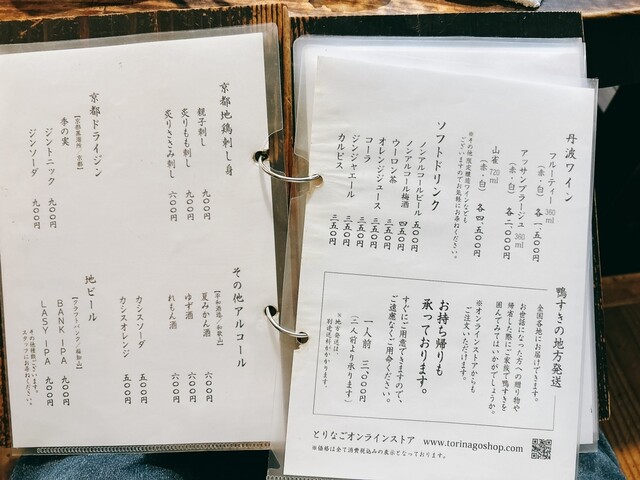 丹波ワイン
フルーティー 360ml
(赤・白) 各 一、五〇〇円
アッサンブラージュ 360ml
(赤・白) 各 二、〇〇〇円
山雀 720ml
(赤・白) 各 四、五〇〇円
※その他 限定醸造ワインなども
ございますのでお気軽にお尋ねください。
ソフトドリンク
ノンアルコールビール 五〇〇円
ノンアルコール梅酒 四五〇円
ウーロン茶 三五〇円
オレンジジュース 三五〇円
コーラ 三五〇円
ジンジャエール 三五〇円
カルピス 三五〇円
鴨すきの地方発送
全国各地にお届けできます。
お世話になった方への贈り物や
帰省した際にご家族で鴨すきを
囲んでみてはいかがでしょうか。
※オンラインストアからも
ご注文いただけます。
お持ち帰りも
承っております。
すぐにご用意できますので、
ご遠慮なくご用命ください。
一人前 三、〇〇〇円
(二人前より承ります)
※地方発送は、
別途送料がかかります。
とりなごオンラインストア www.torinagoshop.com
※価格は全て消費税込みの表示となっております。
京都地鶏刺し身
親子刺し 九〇〇円
炙りもも刺し 九〇〇円
炙りささみ刺し 六〇〇円
京都ドライジン
【京都蒸溜所/京都】
季の実
ジントニック 九〇〇円
ジンソーダ 九〇〇円
その他アルコール
【平和酒造/和歌山】
夏みかん酒 六〇〇円
ゆず酒 六〇〇円
れもん酒 六〇〇円
カシスソーダ 五〇〇円
カシスオレンジ 五〇〇円
地ビール
【クラフトバンク/福知山】
BANK IPA 九〇〇円
LASY IPA 九〇〇円
その他種類ございます。
スタッフにお尋ねください。